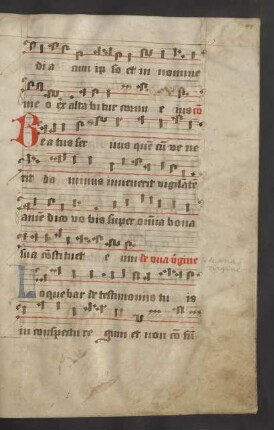 dia cum ip so et in nomine
me o exaltabitur cornu e ius cō
Beatus ser uus quē cū vene
rit do minus invenerit vigilātē
amē dico vo bis super omnia bona
sua cōstituet e um de vna v̄gine
Loquebar de testimoniis tu is
in conspectu re gum et non cō fū